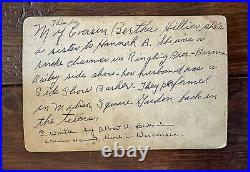 This by
My Cousin Bertha Hillier, she's
a sister to Hannah B. Stevens a
snake charmer as Ringling Bros-Barnum
Bailey side show. her husband was a
Side Show Barker. They performed
in Madison Square Garden back in
the teens.
written by Albert